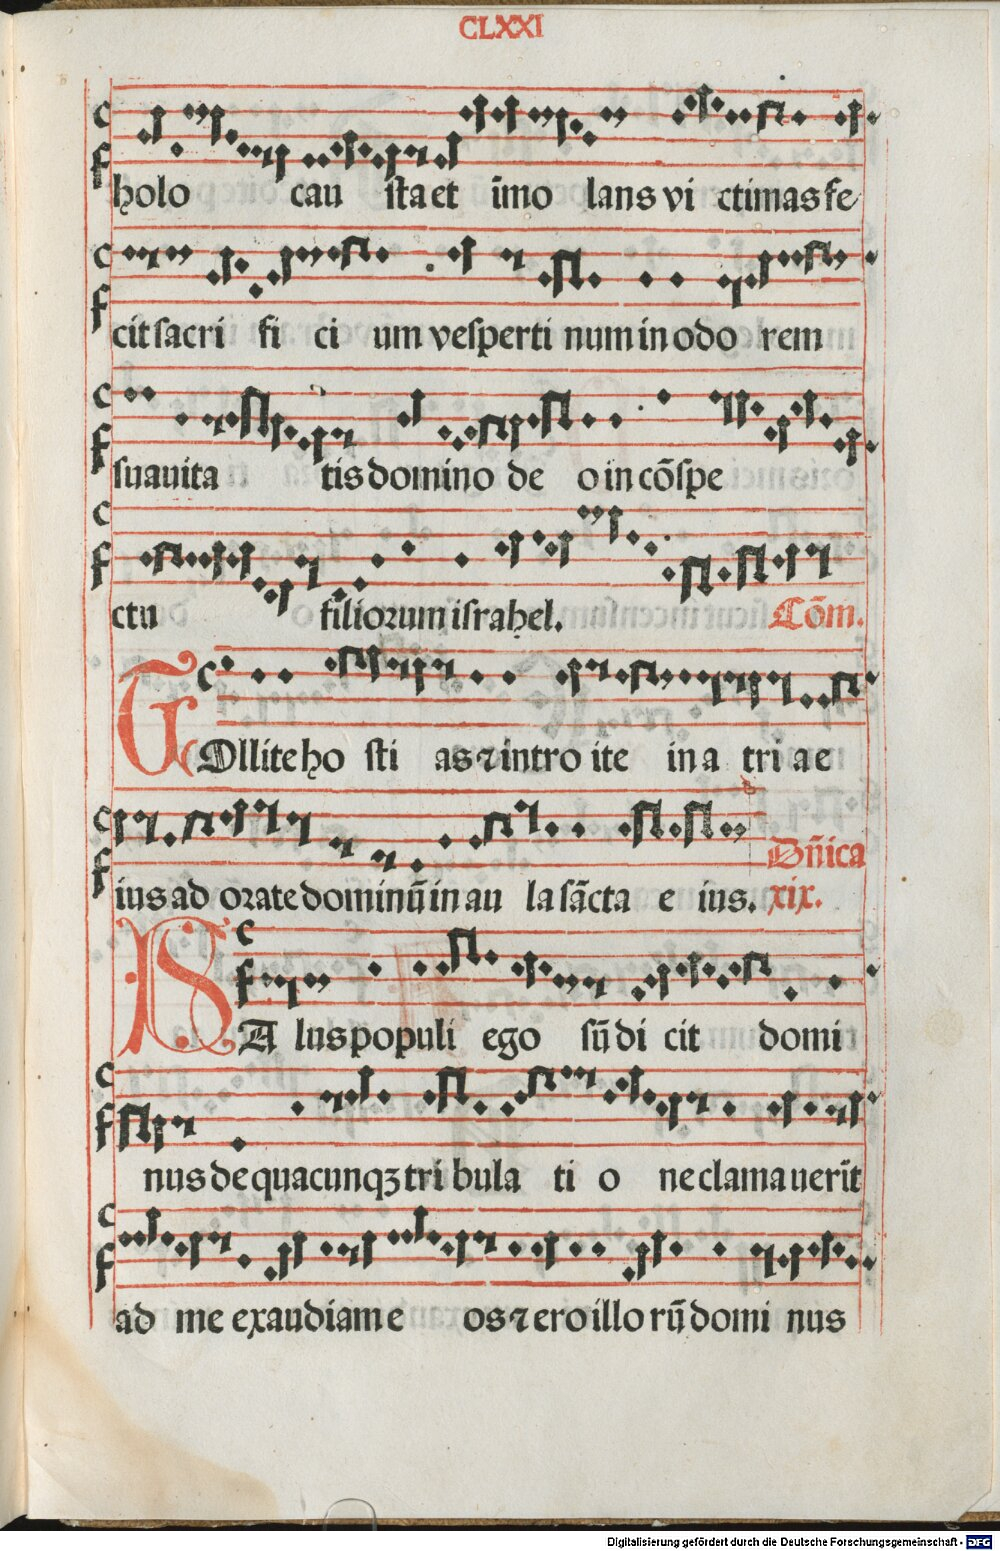 CLXXI
holo cau sta et ĩmo lans vi ctimas fe
cit sacri fi ci um vesperti num in odo rem
suauita tis domino de o in cõspe
ctu filiorum israhel. Cõm.
TOllite ho sti as ⁊ intro ite in a tri a e
ius ad orate dominũ in au la sãcta e ius. Dñica xix.
SAlus populi ego sũ di cit domi
nus de quacunqꝫ tri bula ti o ne clama uerĩt
ad me exaudiam e os ⁊ ero illo rũ domi nus
Digitalisierung gefördert durch die Deutsche Forschungsgemeinschaft - DFG